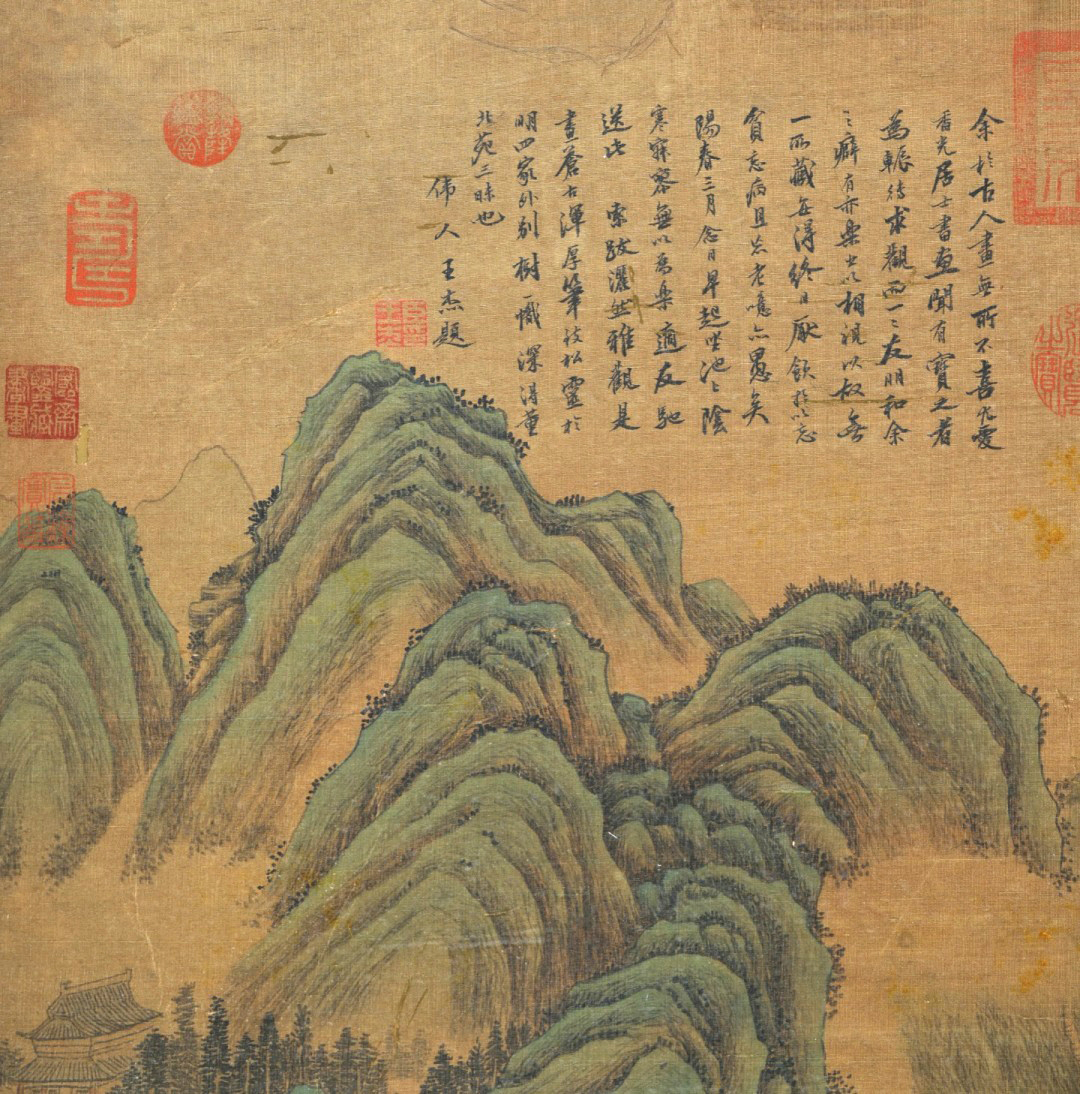 余於古人畫無所不喜凡愛
香光居士書画聞有寶之者
為輾待求觀而一二友朋和余
之癖有亦樂出以相視以叔無
一所藏每得終日厭飫於以忘
貧忘病且忘老噫亦愚矣
陽春三月念日早起坐池上陰
寒寂寥無以為樂適友馳
送此 索跋灑然雅觀是
畫蒼古渾厚筆技松靈於
明四家外別樹一幟深得董
北苑三昧也
伟人王杰題